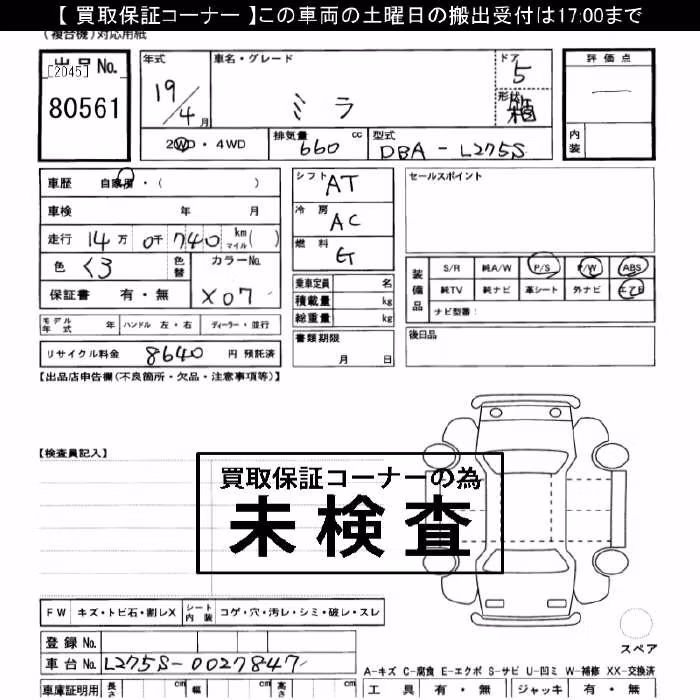 【 買取保証コーナー 】この車両の土曜日の搬出受付は17:00まで
(複合機)対応用紙
出品No.
[2045]
80561
年式
19/4月
車名・グレード
ミラ
ドア
5
形状
箱
評価点
一
内装
2WD・4WD
排気量 660 cc
型式 DBA-L275S
車歴 自家用・( )
車検 年 月
走行 14万 0千740 km マイル( )
色 くろ 色替
カラーNo.
X07
保証書 有・無
シフト AT
冷房 AC
燃料 G
乗車定員 名
積載量 kg
総重量 kg
セールスポイント
装備品
S/R 純A/W P/S P/W ABS
純TV 純ナビ 革シート 外ナビ エアB
ナビ型番:
モデル年式 年 ハンドル 左・右 ディーラー・並行
書類期限
月 日
後日品
リサイクル料金 8640 円 預託済
【出品店申告欄(不良箇所・欠品・注意事項等)】
【検査員記入】
買取保証コーナーの為
未検査
FW キズ・トビ石・割レX シート内装 コゲ・穴・汚レ・シミ・破レ・スレ
スペア
登録No.
車台No. L275S-0027847
A-キズ C-腐食 E-エクボ S-サビ U-凹ミ W-補修 XX-交換済
車庫証明用 長さ cm 幅 cm 高さ cm
工具 有・無 ジャッキ 有・無